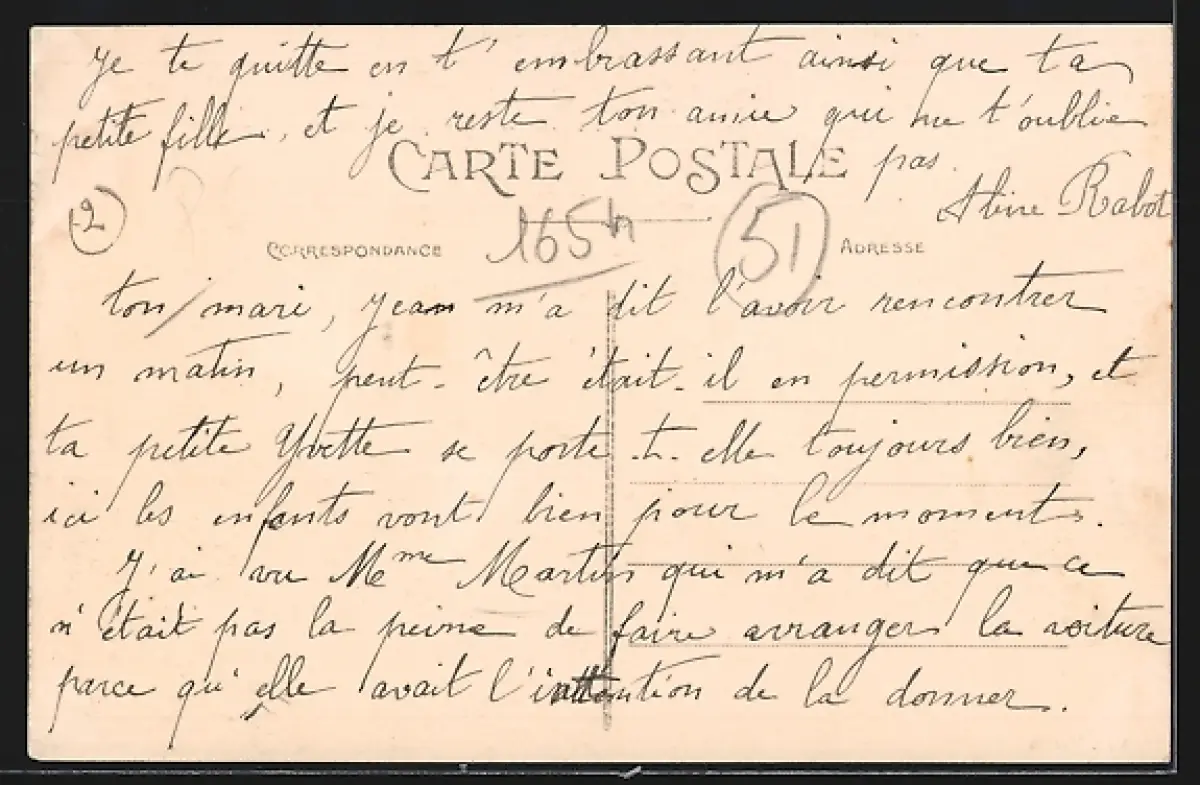 Je te quitte en t'embrassant ainsi que ta
petite fille, et je reste ton amie qui ne t'oublie
pas.
CARTE POSTALE
Aline Rabot
(2)
165h
51
CORRESPONDANCE
ADRESSE
ton mari, Jean m'a dit l'avoir rencontrer
un matin, peut-être était-il en permission, et
ta petite Yvette se porte-t-elle toujours bien,
ici les enfants vont bien pour le moments.
J'ai vu Mme Martin qui m'a dit que ce
n'était pas la peine de faire arranger la voiture
parce qu'elle avait l'intention de la donner.